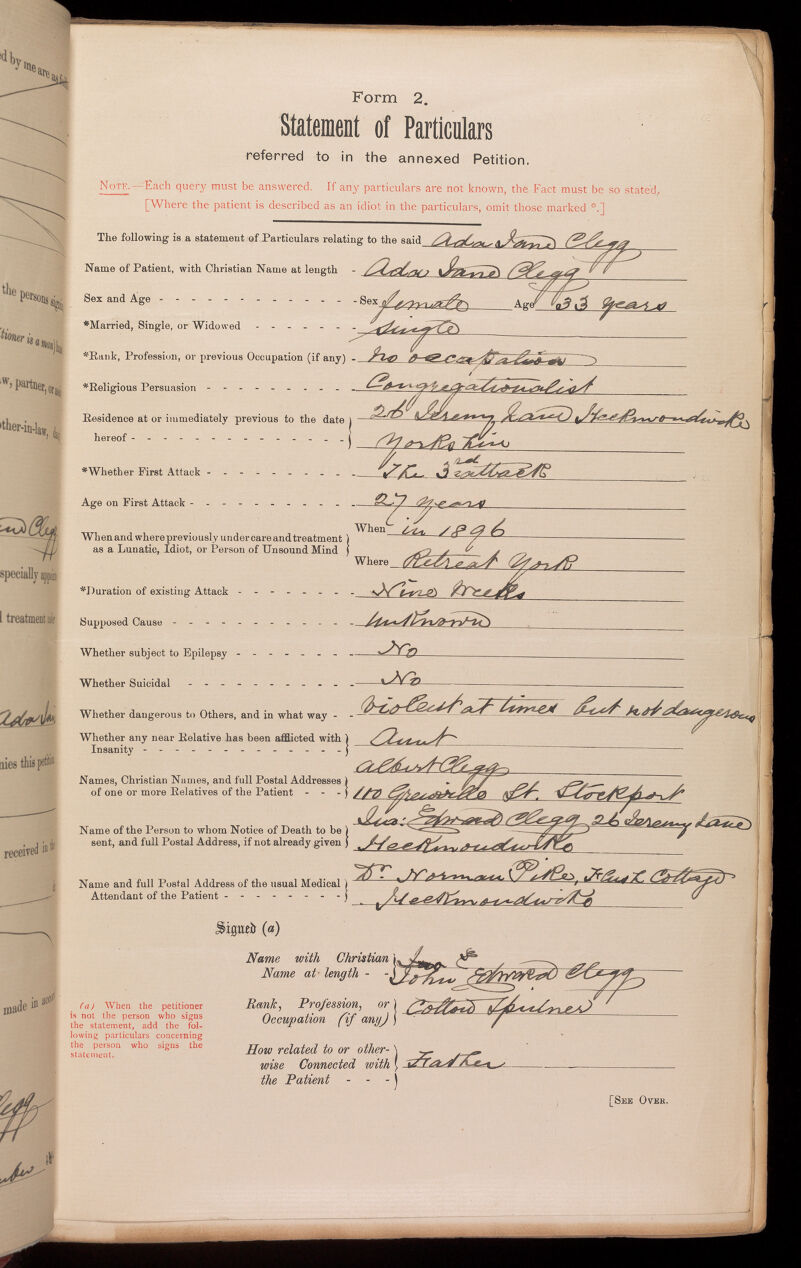 Form 2.
Statement of Particulars
referred to in the annexed Petition.
NOTE.—Each query must be answered. If any particulars are not known, the Fact must be so stated,
[Where the patient is described as an idiot in the particulars, omit those marked °.]
The following is a statement of Particulars relating to the said Ada Jane Clegg
Name of Patient, with Christian Name at length - Ada Jane Clegg
Sex and Age - - - - - - - - - - - Sex female Age 33 years
*Married, Single, or Widowed - - - - - - - Single
*Rank, Profession, or previous Occupation (if any) - No occupation
*Religious Persuasion - - - - - - - - - Congregationalist
Residence at or immediately previous to the date 26 Jeremy Lane Heckmondwike
hereof - - - - - - - - - - - - - Yorkshire
*Whether First Attack - - - - - - - - - The 3rd attack
Age on First Attack - - - - - - - - - - 27 years
When and where previously under care and treatment When in 1896
as a Lunatic, Idiot, or Person of Unsound Mind
Where Retreat York
*Duration of existing Attack - - - - - - - Nine Weeks
Supposed Cause - - - - - - - - - - - Unknown
Whether subject to Epilepsy - - - - - - - No
Whether Suicidal - - - - - - - - - - No
Whether dangerous to Others, and in what way - - Violent at times but not dangerous
Whether any near Relative has been afflicted with Aunt
Insanity - - - - - - - - - - - - -
Albert Clegg
Names, Christian Names, and full Postal Addresses
of one or more Relatives of the Patient - - - 110 St. Stockport
Name of the Person to whom Notice of Death to be Jno: Edward Clegg, 26 Jeremy Lane
sent, and full Postal Address, if not already given Heckmondwike
Name and full Postal Address of the usual Medical Dr. Norman Pike, Flush Cottage
Attendant of the Patient - - - - - - - - Heckmondwike
Signed (a)
Name with Christian Jno E
Name at length - - John Edward Clegg
Rank, Profession, or Cotton Spinner
Occupation (if any)
How related to or other-
wise Connected with Father
the Patient - - -
(a) When the petitioner
is not the person who signs
the statement, add the fol-
lowing particulars concerning
the person who signs the
statement.
[SEE OVER.
ed by me are as
the persons
tioner is a man
w, partner, or
ther-in-law,
Clegg
specially
treatment
Ada
nies this petition
received in
made in
egg